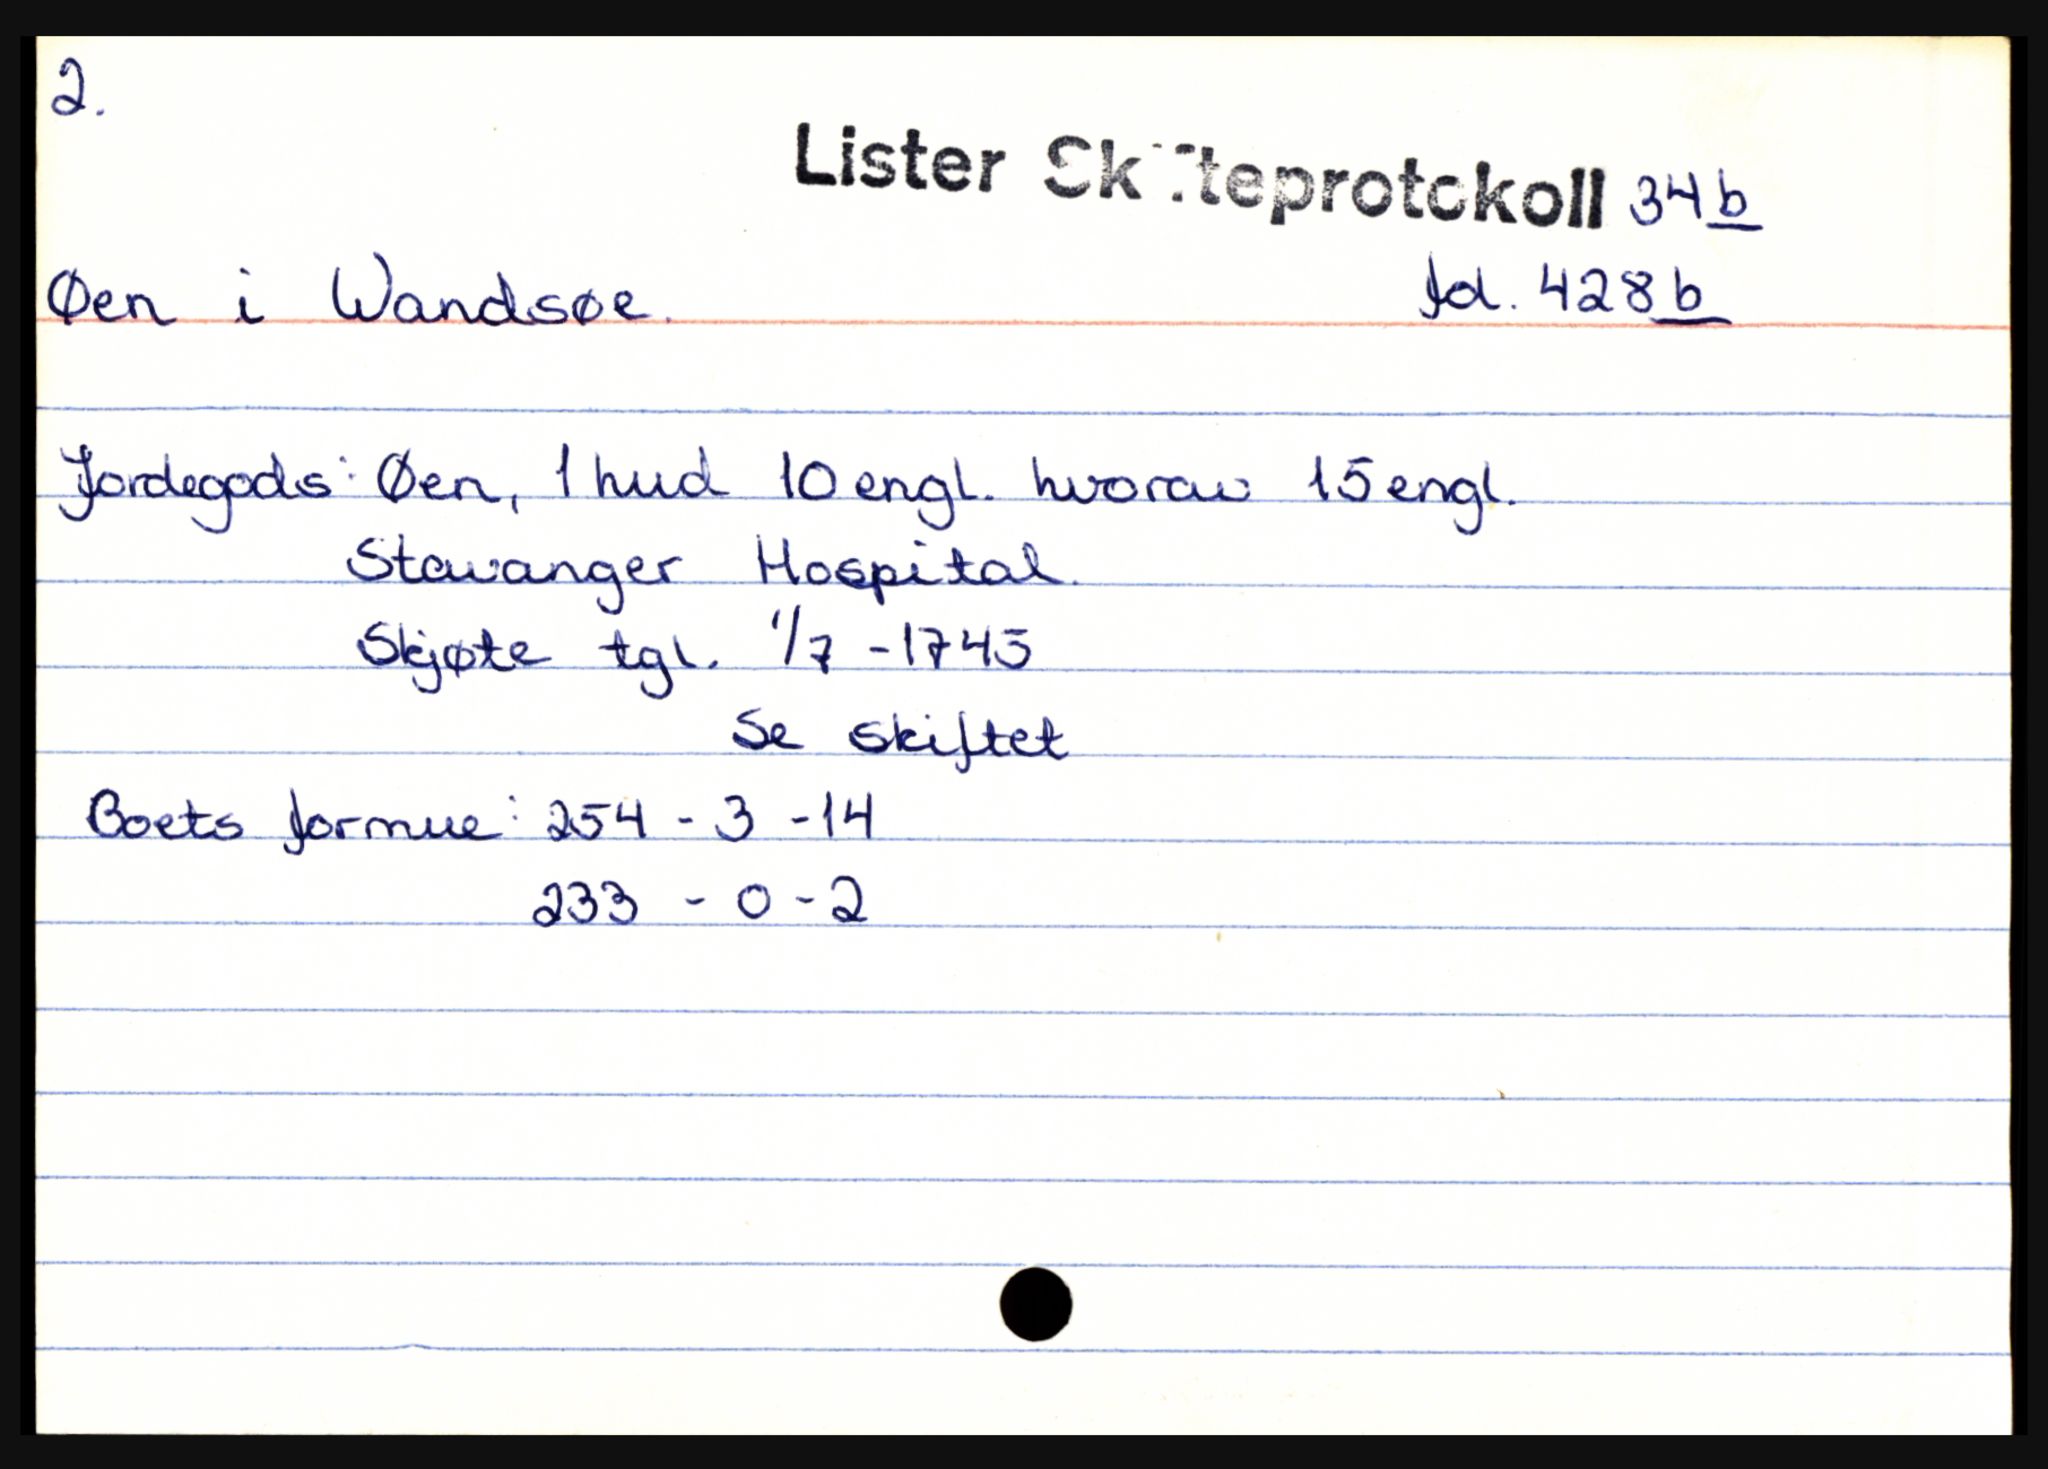 2.
Lister Skifteprotokoll 34b
Øen i Wandsøe. fol. 428b
Jordegods: Øen, 1 hud 10 engl. hvorav 15 engl.
Stavanger Hospital.
Skjøte tgl. 1/7 - 1745
Se skiftet
Boets formue: 254 - 3 - 14
233 - 0 - 2